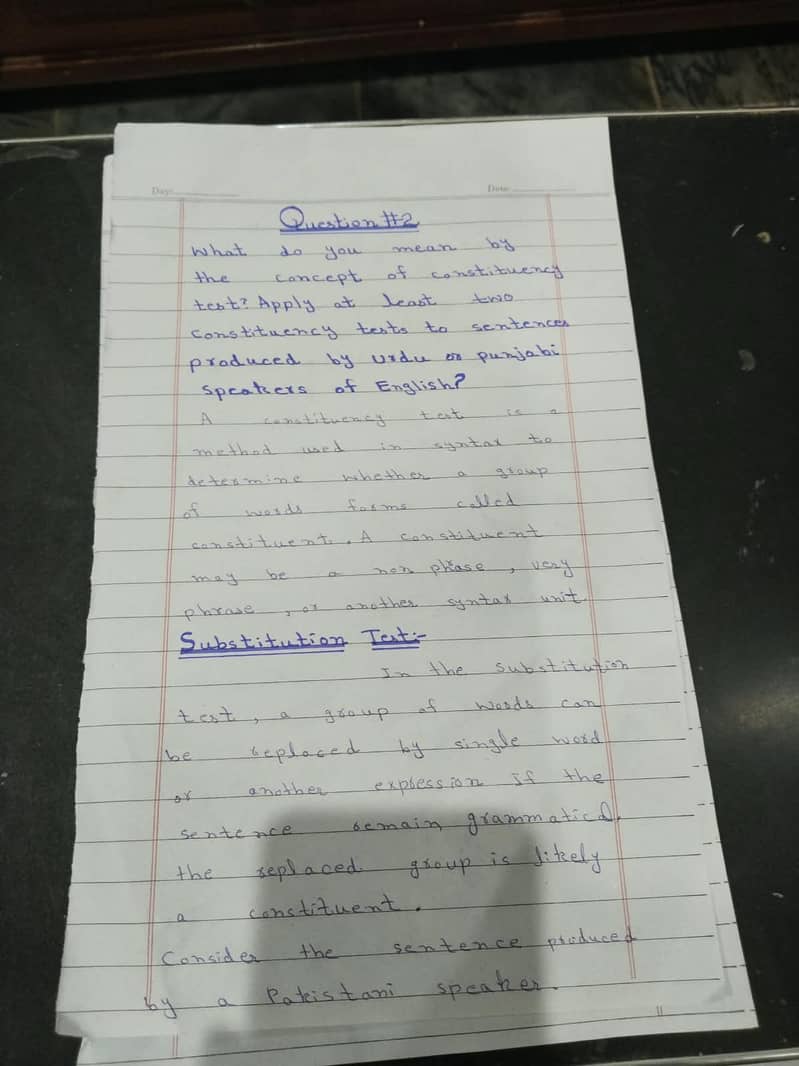 Day:
Date:
Question #2
What do you mean by
the concept of constituency
test? Apply at least two
constituency tests to sentences
produced by urdu or punjabi
speakers of English?
A constituency test is a
method used in syntax to
determine whether a group
of words forms called
constituent. A constituent
may be a non phrase, very
phrase, or another syntax unit
Substitution Test:-
In the substitution
test, a group of words can
be replaced by single word
or another expression if the
sentence remain grammatical.
the replaced group is likely
a constituent.
Consider the sentence produced
by a Pakistani speaker.